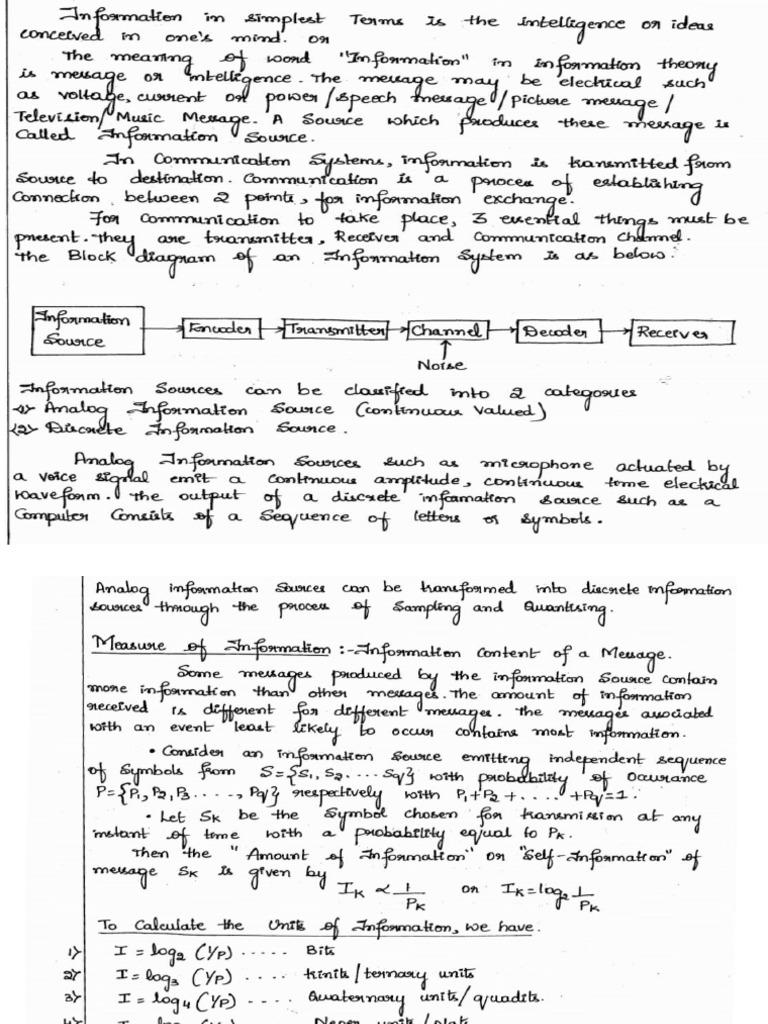 Information in simplest Terms is the intelligence or ideas
conceived in one's mind. or
The meaning of word "Information" in information theory
is message or intelligence. The message may be electrical such
as voltage, current or power/speech message/picture message/
Television/Music Message. A Source which produces these message is
Called Information Source.
In Communication Systems, information is transmitted from
Source to destination. Communication is a process of establishing
Connection between 2 points, for information exchange.
For Communication to take place, 3 essential things must be
present. They are transmitter, Receiver and Communication Channel.
The Block diagram of an Information System is as below:
Information Source
Encoder
Transmitter
Channel
Decoder
Receiver
Noise
Information Sources can be classified into 2 categories
(1) Analog Information Source (continuous valued)
(2) Discrete Information Source.
Analog Information Sources such as microphone actuated by
a voice signal emit a continuous amplitude, continuous time electrical
waveform. The output of a discrete information source such as a
Computer Consists of a Sequence of letters or symbols.
Analog information sources can be transformed into discrete information
sources through the process of Sampling and Quantising.
Measure of Information :- Information Content of a Message.
Some messages produced by the information Source contain
more information than other messages. The amount of information
received is different for different messages. The messages associated
with an event least likely to occur contains most information.
• Consider an information source emitting independent sequence
of Symbols from S={S1, S2. ... Sq} with probability of Occurance
P={P1, P2, P3 ....., Pq} respectively with P1+P2+.....+Pq=1.
• Let SK be the Symbol chosen for transmission at any
instant of time with a probability equal to PK.
Then the "Amount of Information" or "Self-Information" of
message SK is given by
IK ∝ 1/PK or IK = log2 1/PK
To Calculate the Units of Information, we have.
1) I = log2 (1/P) ..... Bits
2) I = log3 (1/P) .... trinits/ternary units
3) I = log4 (1/P) .... Quaternary units/quadits.